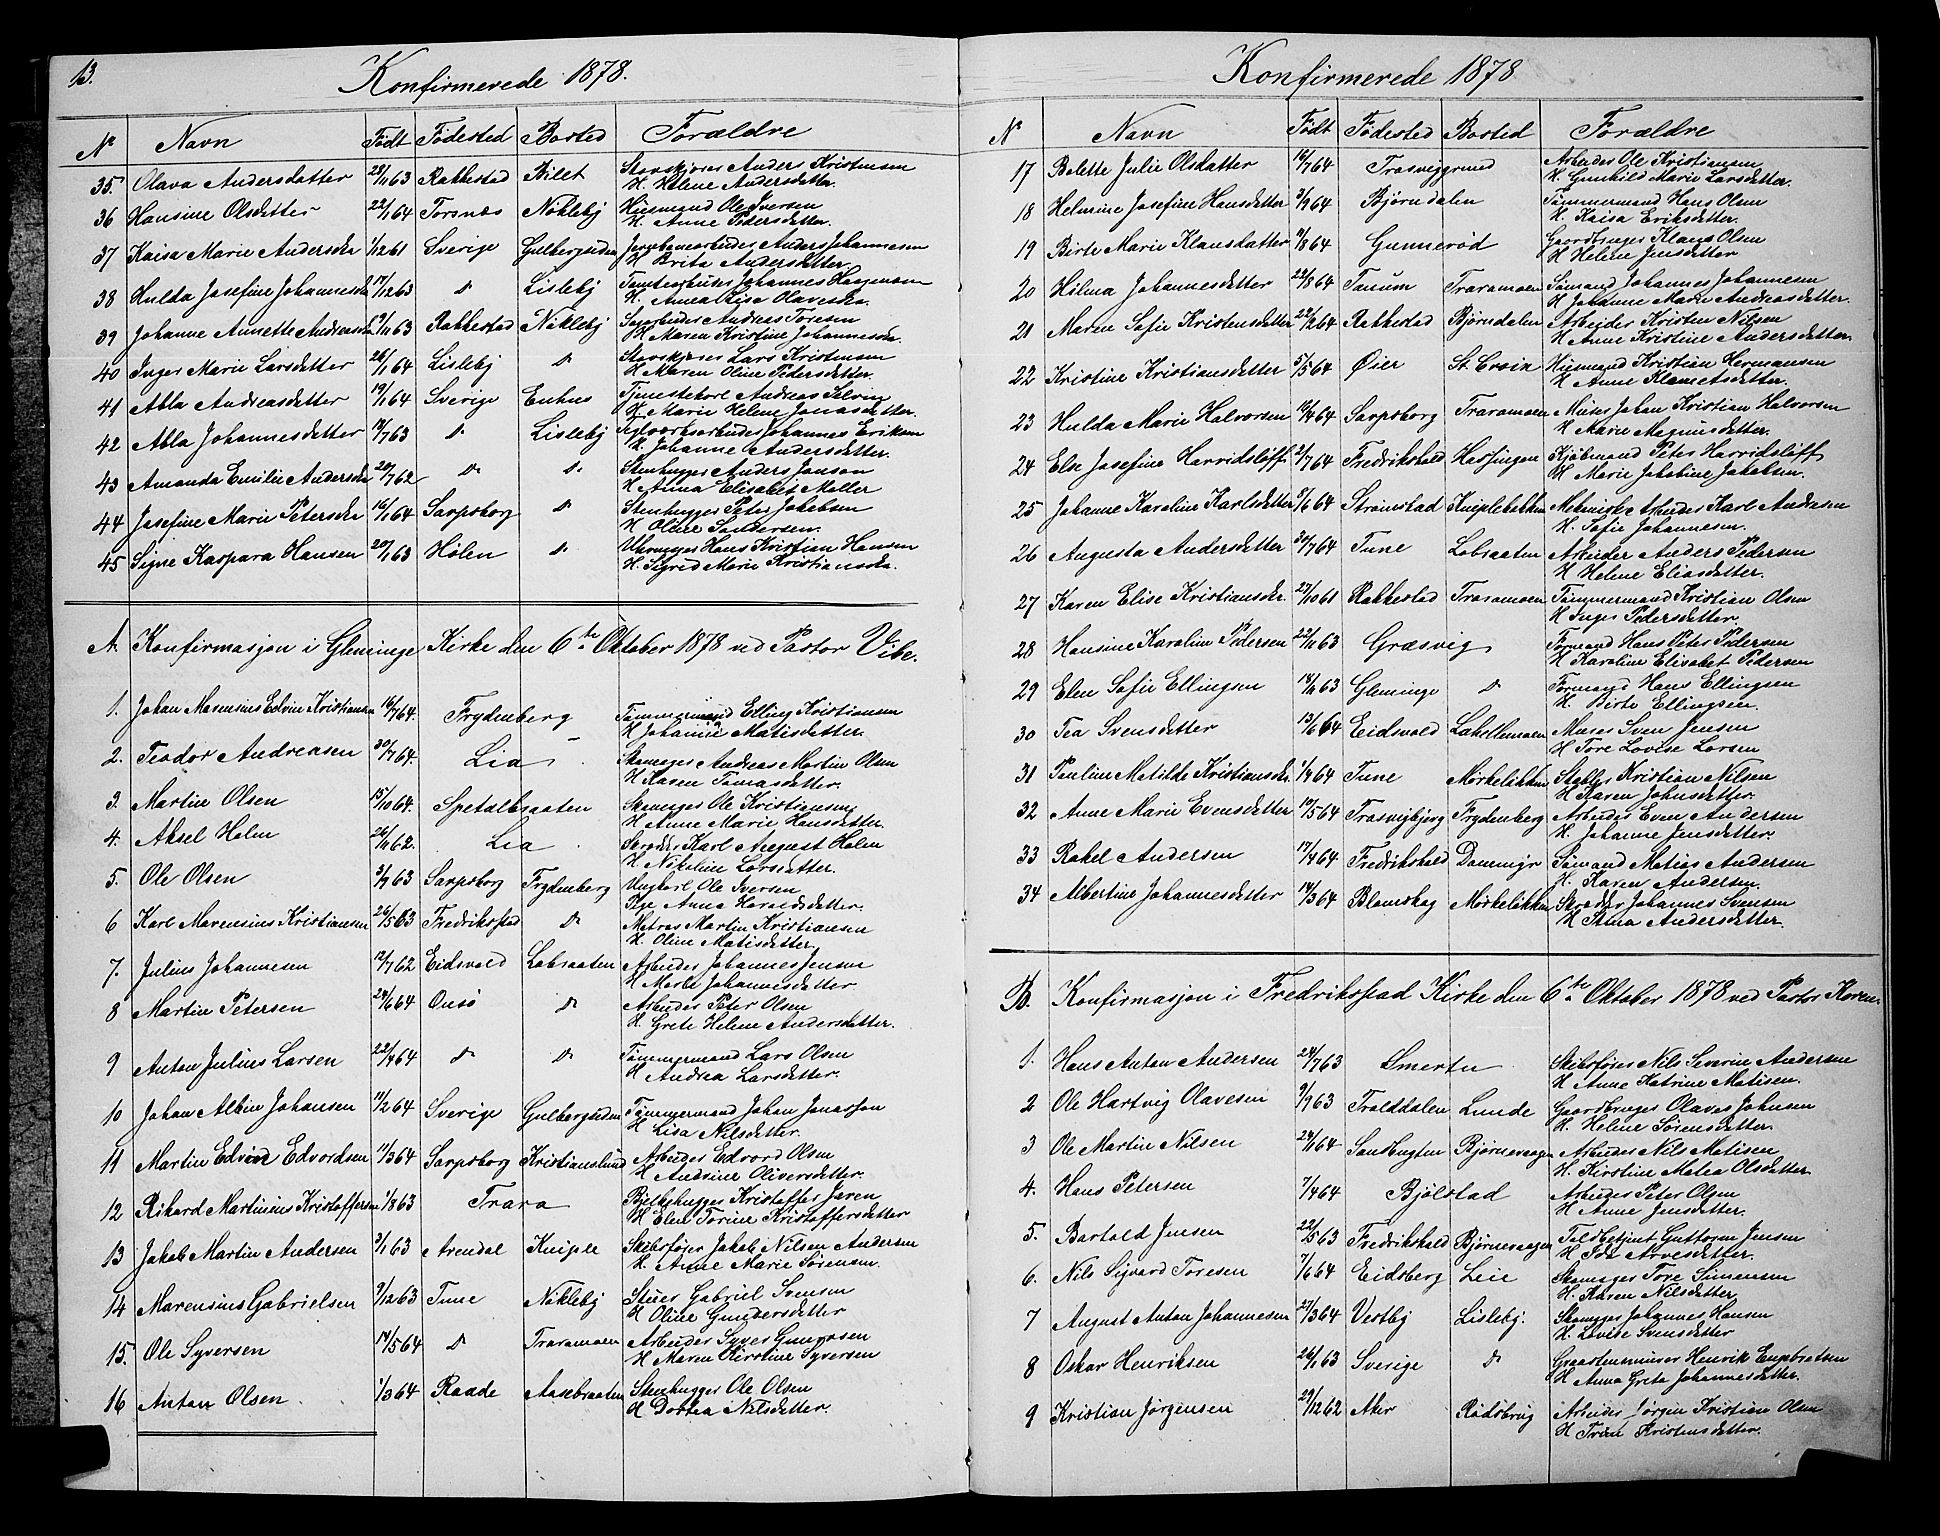 13.
Konfirmerede 1878.
No Navn Født Fødested Bosted Forældre
35. Olava Andersdatter 23/11 63 Rakkestad Bilet Anders Kristensen
H. Helene Andersdetter.
36 Hansine Olsdetter 22/1 64 Torsnæs Nöklebj Husmand Ole Iversen
H. Anne Pedersdetter.
37 Kaisa Marie Andersdtr 1/12 61 Sverige Jernbanearbeider Anders Johannesen
H Brita Andersdetter
38 Hulda Josefine 17/12 63 do Lislebj Johannes
H. Anna Lisa
39 Johanne Annette 9/11 63 Rakkestad Nöklebj Andreas Toresen
H Maren Kristine
40 Inger Marie Larsdetter 26/1 64 Lislebj do Lars Kristensen
H Maren Oline Pedersdetter.
41 Abla Andreasdetter 19/1 64 Sverige Enhus Tjenestekarl Andreas
H. Marie Helene Jonasdetter.
42 Abla Johannesdetter 18/7 63 do Lislebj Johannes Eriksen
H. Johanne Andersdetter.
43 Amanda Emilie 20/7 62 do do Stenhugger Anders Janson
H Anna Elisabet Møller
44 Josefine Marie 16/1 64 Sarpsborg do Stenhugger Peter Jakobsen
H Oline Sandersen.
45 Signe Kaspara Hansen 20/1 63 Hølen do Uhrmager Hans Kristian Hansen
H. Sigrid Marie
A. Konfirmasjon i Gleminge Kirke den 6te Oktober 1878 ved Pastor Vibe.
1. Johan Marensius Edvin Kristiansen 16/7 64. Frydenberg Tømmermand Elling Kristiansen
H Johanne Matisdetter.
2. Teodor Andreasen 30/7 64. Lia Skomager Andreas Martin Olsen
H Karen Tomasdetter.
3. Martin Olsen 15/10 64. Spetalbraaten Skomager Ole Kristiansen
H. Anne Marie Hansdetter.
4. Aksel Holm 26/11 62. Lia Skrædder Karl August Holm
H. Nikoline Larsdatter.
5. Ole Olsen 3/9 63 Sarpsborg Frydenberg Ungkarl Ole Iversen
Anna Haraldsdetter.
6 Karl Marensius Kristiansen 26/5 63 Fredrikstad do Matros Martin Kristiansen
H. Oline Matisdetter
7. Julius Johannesen 12/7 62 Eidsvold Labraaten Arbeider Johannes Jensen
H Marte Johannesdetter
8 Martin Petersen 24/6 64 Onsø do Arbeider Peter Olsen
H. Grete Helene Andersdetter.
9 Anton Julius Larsen 22/4 64 do do Tømmermand Lars Olsen
H Andrea Larsdetter.
10 Johan Albin Johansen 11/2 64 Sverige Tømmermand Johan Jonasson
H Lisa Nilsdetter
11 Martin Edvin Edvordsen 11/3 64 Sarpsborg Kristianslund Arbeider Edvord Olsen
H Andrine Oliversdetter.
12 Rikard Martinius Kristoffersen 1/8 63 Trara Kristoffer
H Elen Torine Kristoffersdetter
13 Jakob Martin Andersen 3/1 63 Arendal Kniple Skibsfører Jakob Nilsen Andersen
H. Anne Marie Sørensen.
14 Marensius Gabrielsen 9/12 63 Tune Nöklebj Gabriel Svensen
H Oline Gundersdetter
15. Ole Syversen 14/5 64 do Traramoen Arbeider Syver
H Maren Kirstine Syversen
16 Anton Olsen 1/3 64 Raade Aasebraaten Stenhugger Ole Olsen
H Dortea Nilsdetter.
Konfirmerede 1878
No Navn Født Fødested Bosted Forældre
17 Bolette Julie Olsdatter 16/7 64 Trosviggrund Arbeider Ole Kristiansen
H. Gunhild Marie Larsdetter.
18 Helmine Josefine Hansdetter 3/9 64 Bjørndalen Tømmermand Hans Olsen
H. Kaisa Eriksdetter.
19 Birte Marie Klausdatter 9/8 64 Gunnerød Gaardbruger Klaus Olsen
H Helene Jensdetter
20 Hilma Johannesdetter 22/8 64 Tanum Traramoen Sømand Johannes Johannesen
H Johanne Marie Andreasdetter.
21 Maren Sofie Kristensdetter 22/2 64 Rakkestad Bjørndalen Arbejder Kristen Nilsen
H Anne Kristine Andersdetter.
22 Kristine Kristiansdetter 5/5 64 Øier St. Croix Husmand Kristian Hermansen
H Anne
23 Hulda Marie Halvorsen 16/4 64 Sarpsborg Traramoen Johan Kristian Halvorsen
H Marie Magnusdetter.
24 Else Josefine Harridsleff 2/7 64 Fredrikshald Kjøbmand Peter Harridsleff
H Marie Jakobine Jakobsen.
25 Johanne Karoline Karlsdetter 9/6 64 Strømstad Kniplebakken Mekanisk Arbeider Karl Andresen
H. Sofie Johannesen.
26 Augusta Andersdetter 30/7 64 Tune Labraaten Arbeider Anders Pedersen
H Helene Eliasdetter.
27 Karen Elise Kristiansdtr. 27/10 61 Rakkestad Traramoen Tømmermand Kristian Olsen
H Inger Pedersdetter.
28 Hansine Karoline Pedersen 22/11 63 Græsvig Formand Hans Peter Pedersen
H Karoline Elisabet Pedersen
29 Elen Sofie Ellingsen 18/11 63 Gleminge do Formand Hans Ellingsen
H. Birte Ellingsen.
30 Tea Svensdetter 13/6 64 Eidsvold Murer Sven Jensen
H Tore Lovise Larsen
31 Pauline Matilde 1/4 64 Tune Mørkelökken Kristian Nilsen
H Karen Johnsdetter.
32 Anne Marie Evensdetter 17/5 64 Trosvigbjerg Frydenberg Arbeider Even Andersen
H. Johanne Jensdetter.
33 Rakel Andersen 17/4 64 Fredrikshald Sømand Matias Andersen
H. Karen Andersen.
34 Albertine Johannesdetter 14/3 64 Mørkelökken Skrædder Johannes Svensen
H Anna Andersdetter.
B. Konfirmasjon i Fredrikstad Kirke den 6te Oktober 1878 ved Pastor Koren.
1. Hans Anton Andersen 24/7 63 Smertu Skibsfører Nils Severin Andersen
H Anne Katrine Matisen.
2 Ole Hartvig Olavesen 9/9 63 Tralddalen Lunde Gaardbruger Olaves Johnsen
H. Helene Sørensdetter.
3 Ole Martin Nilsen 24/1 64 Sandbugten Bjørnevaagen Arbeider Nils Matisen
H. Kirstine Matea Olsdatter
4. Hans Petersen 7/4 64 Bjølstad Arbeider Peter Olsen
H Anne Jensdetter.
5. Bartold Jensen 22/5 63 Fredrikshald Bjørnevaagen Toldbetjent Guttorm Jensen
H. Ida Arvesdetter.
6. Nils Sigvard Toresen 7/6 64 Eidsberg Leie Skomager Tore Simensen
H. Karen Nilsdetter
7 August Anton Johannesen 27/3 64 Vestbj Lislebj. Skomager Johannes Hansen
H. Lovise Svensdetter
8 Oskar Henriksen 26/1 63 Sverige do Henrik
H Anna Greta Johannesdetter.
9 Kristian Jørgensen 29/12 62 Aker Rødsbrug Arbeider Jørgen Kristian Olsen
H Trine Kristensdetter.